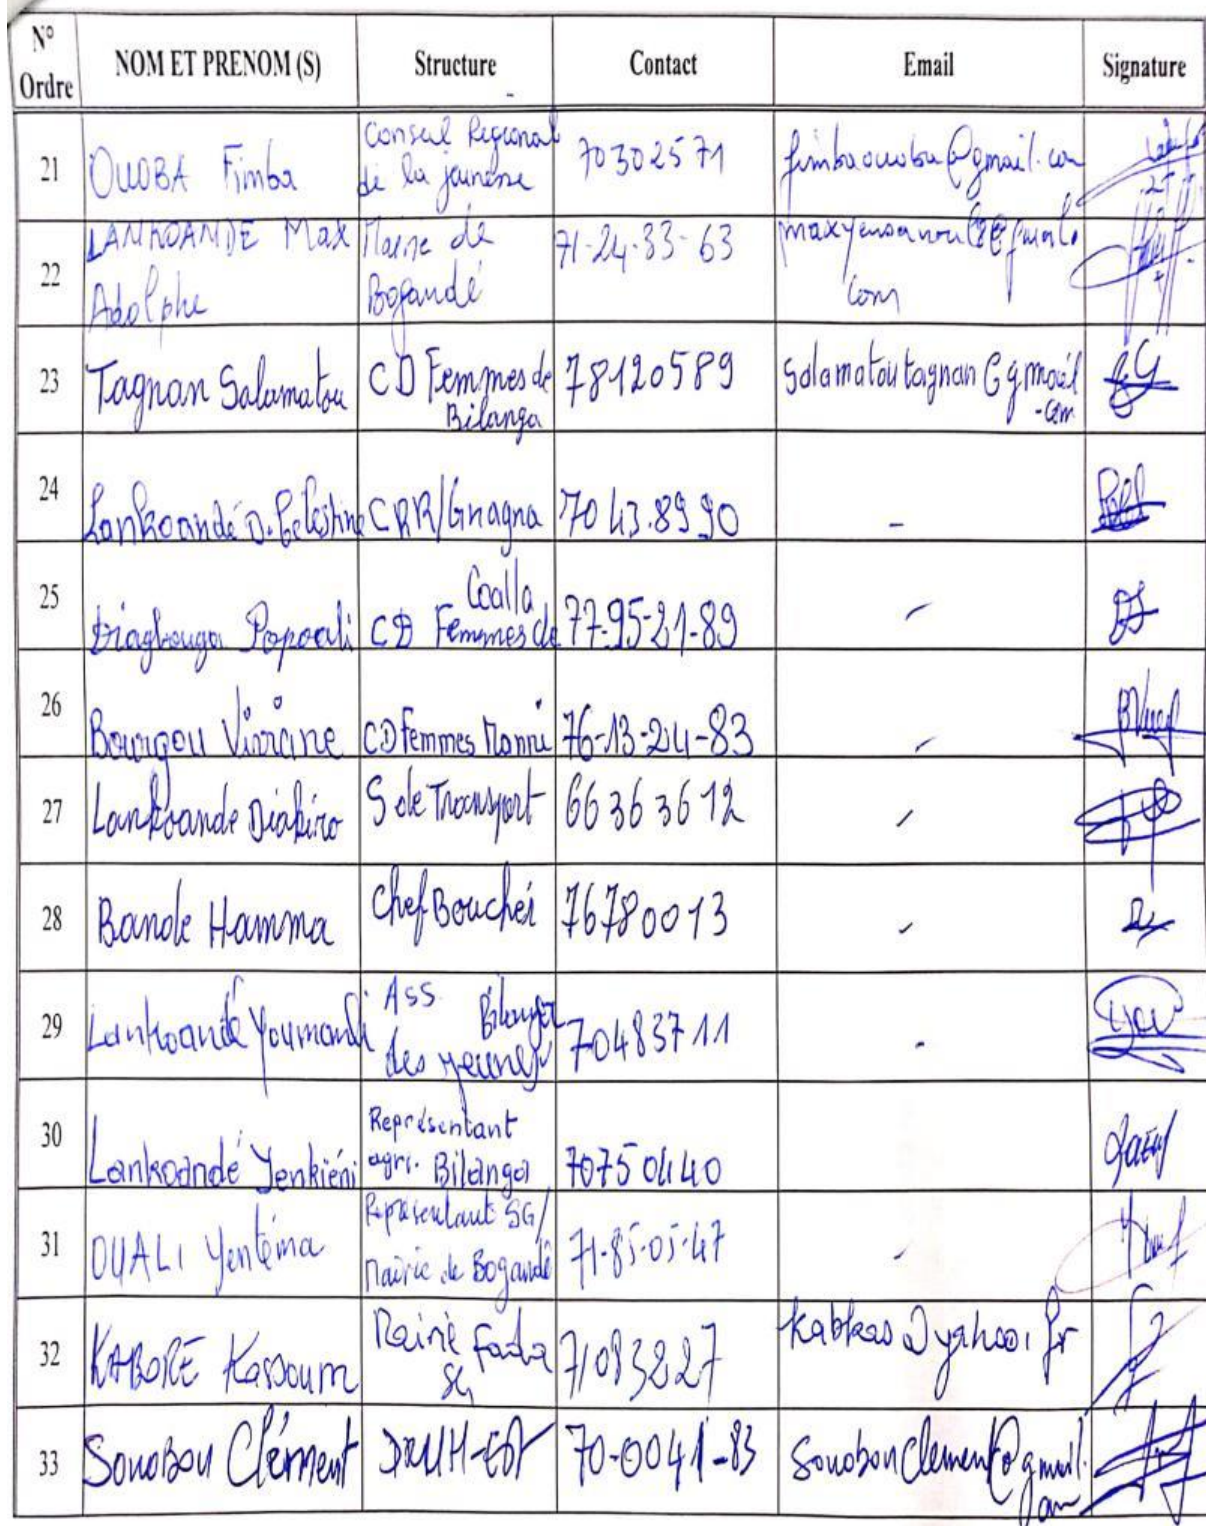 N° Ordre NOM ET PRENOM (S) Structure Contact Email Signature
21 OUOBA Fimba Conseil Regional de la jeunesse 70302571 fimbaouoba@gmail.com
22 LANKOANDE Max Adolphe Mairie de Bogandé 71-24-33-63
23 Tagnan Salamatou CD Femmes de Bilanga 78120589 Salamatoutagnan@gmail.com
24 Lankoandé D. Celestine CRR/Gnagna 7043.8990 -
25 Diagbouga Popoali CD Femmes de Coalla 77-95-21-89
26 Bourgou Viviane CD Femmes Manni 76-13-24-83
27 Lankoande Diabiro S de Transport 66363612
28 Bande Hamma Chef Boucher 76780013
29 Lankoandé Youmanli Ass. des jeunes Bilanga 70483711
30 Lankoandé Yenkiéni Représentant agri. Bilanga 70750440
31 OUALI Yentéma Représentant SG/ Mairie de Bogandé 71-85-05-47
32 KABORE Kassoum Mairie Fada SG 71083227 Kabkas@yahoo.fr
33 Sonobou Clément DRUH-EST 70-0041-83 SonobouClement@gmail.com